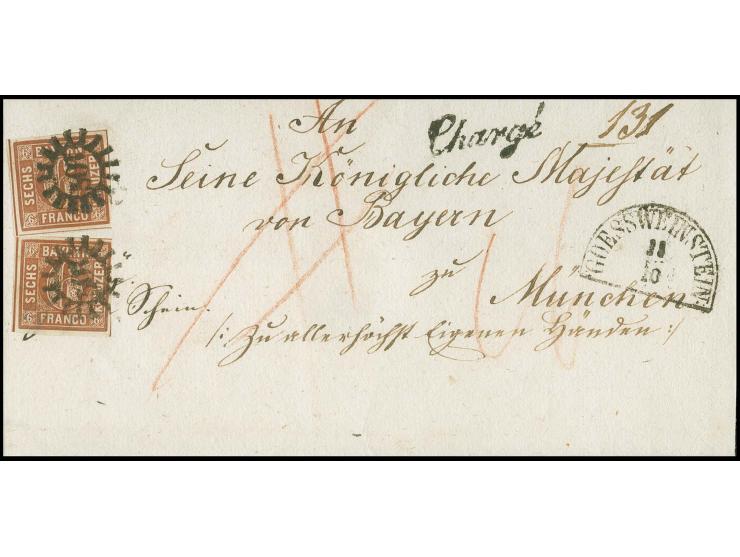 An
Chargé
131
Seine Königliche Majestät
von Bayern
zu
München
/: Zu allerhöchst Eigenen Händen :/
Schein.
GOESSWEINSTEIN
11
10
SECHS
KREUZER
6 FRANCO 6
BAYERN
SECHS
KREUZER
6 FRANCO 6